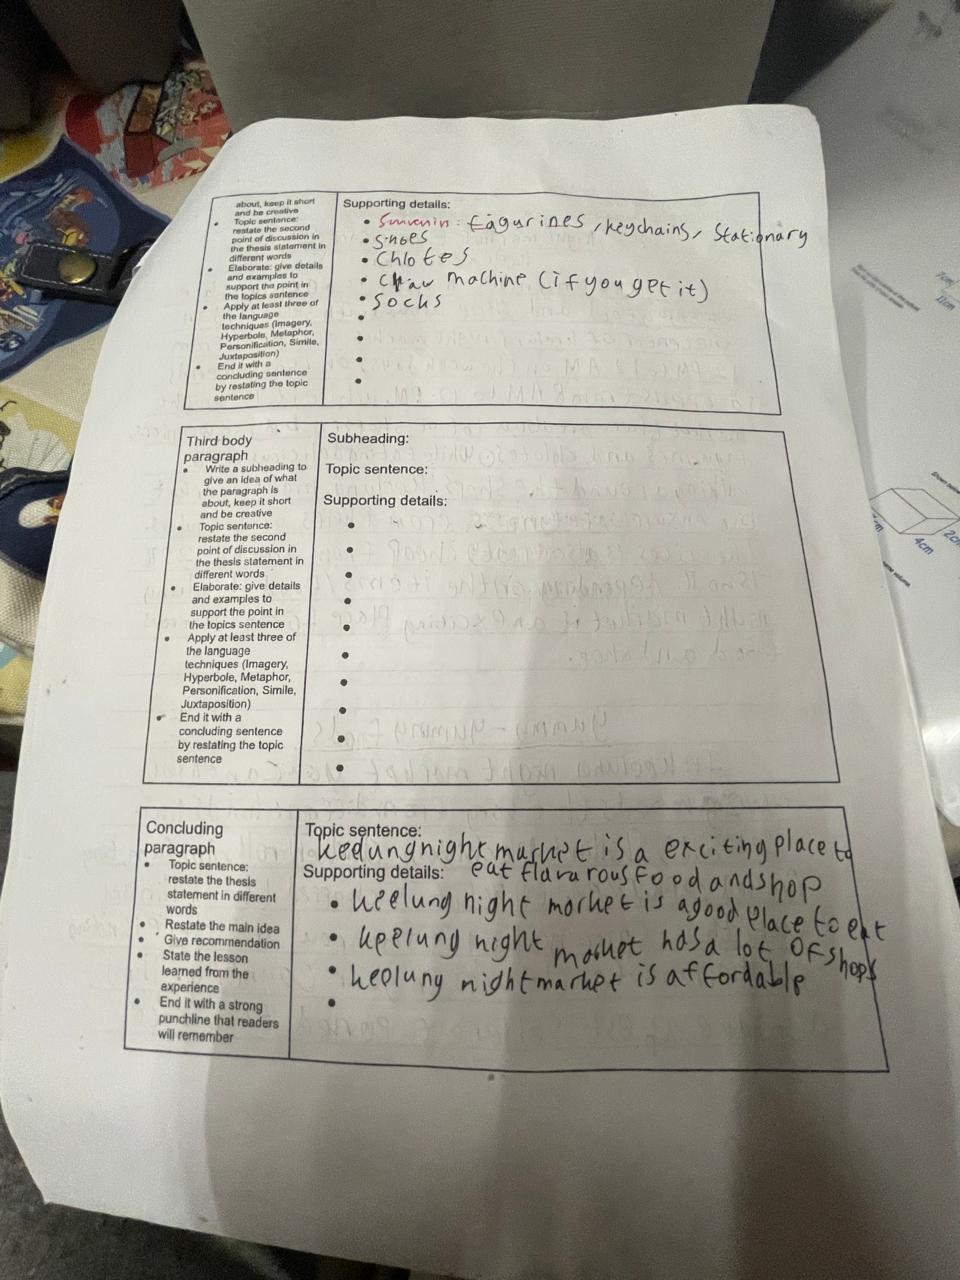 about, keep it short
and be creative
Topic sentence:
restate the second
point of discussion in
the thesis statement in
different words
Elaborate: give details
and examples to
support the point in
the topics sentence
Apply at least three of
the language
techniques (Imagery,
Hyperbole, Metaphor,
Personification, Simile,
Juxtaposition)
End it with a
concluding sentence
by restating the topic
sentence
Supporting details:
Souvenin: fagurines, keychains, Stationary
Shoes
Chlotes
Claw machine (if you get it)
Socks
Third body
paragraph
Write a subheading to
give an idea of what
the paragraph is
about, keep it short
and be creative
Topic sentence:
restate the second
point of discussion in
the thesis statement in
different words
Elaborate: give details
and examples to
support the point in
the topics sentence
Apply at least three of
the language
techniques (Imagery,
Hyperbole, Metaphor,
Personification, Simile,
Juxtaposition)
End it with a
concluding sentence
by restating the topic
sentence
Subheading:
Topic sentence:
Supporting details:
Concluding
paragraph
Topic sentence:
restate the thesis
statement in different
words
Restate the main idea
Give recommendation
State the lesson
learned from the
experience
End it with a strong
punchline that readers
will remember
Topic sentence:
keelung night market is a exciting place to
Supporting details: eat flavarous food and shop
keelung night market is a good place to eat
keelung night market has a lot of shops
keelung night market is affordable
4cm